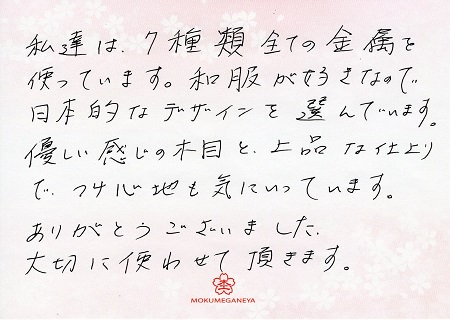 私達は、7種類全ての金属を
使っています。和服が好きなので、
日本的なデザインを選んでいます。
優しい感じの木目と、上品な仕上り
で、つけ心地も気にいっています。
ありがとうございました。
大切に使わせて頂きます。
MOKUMEGANEYA